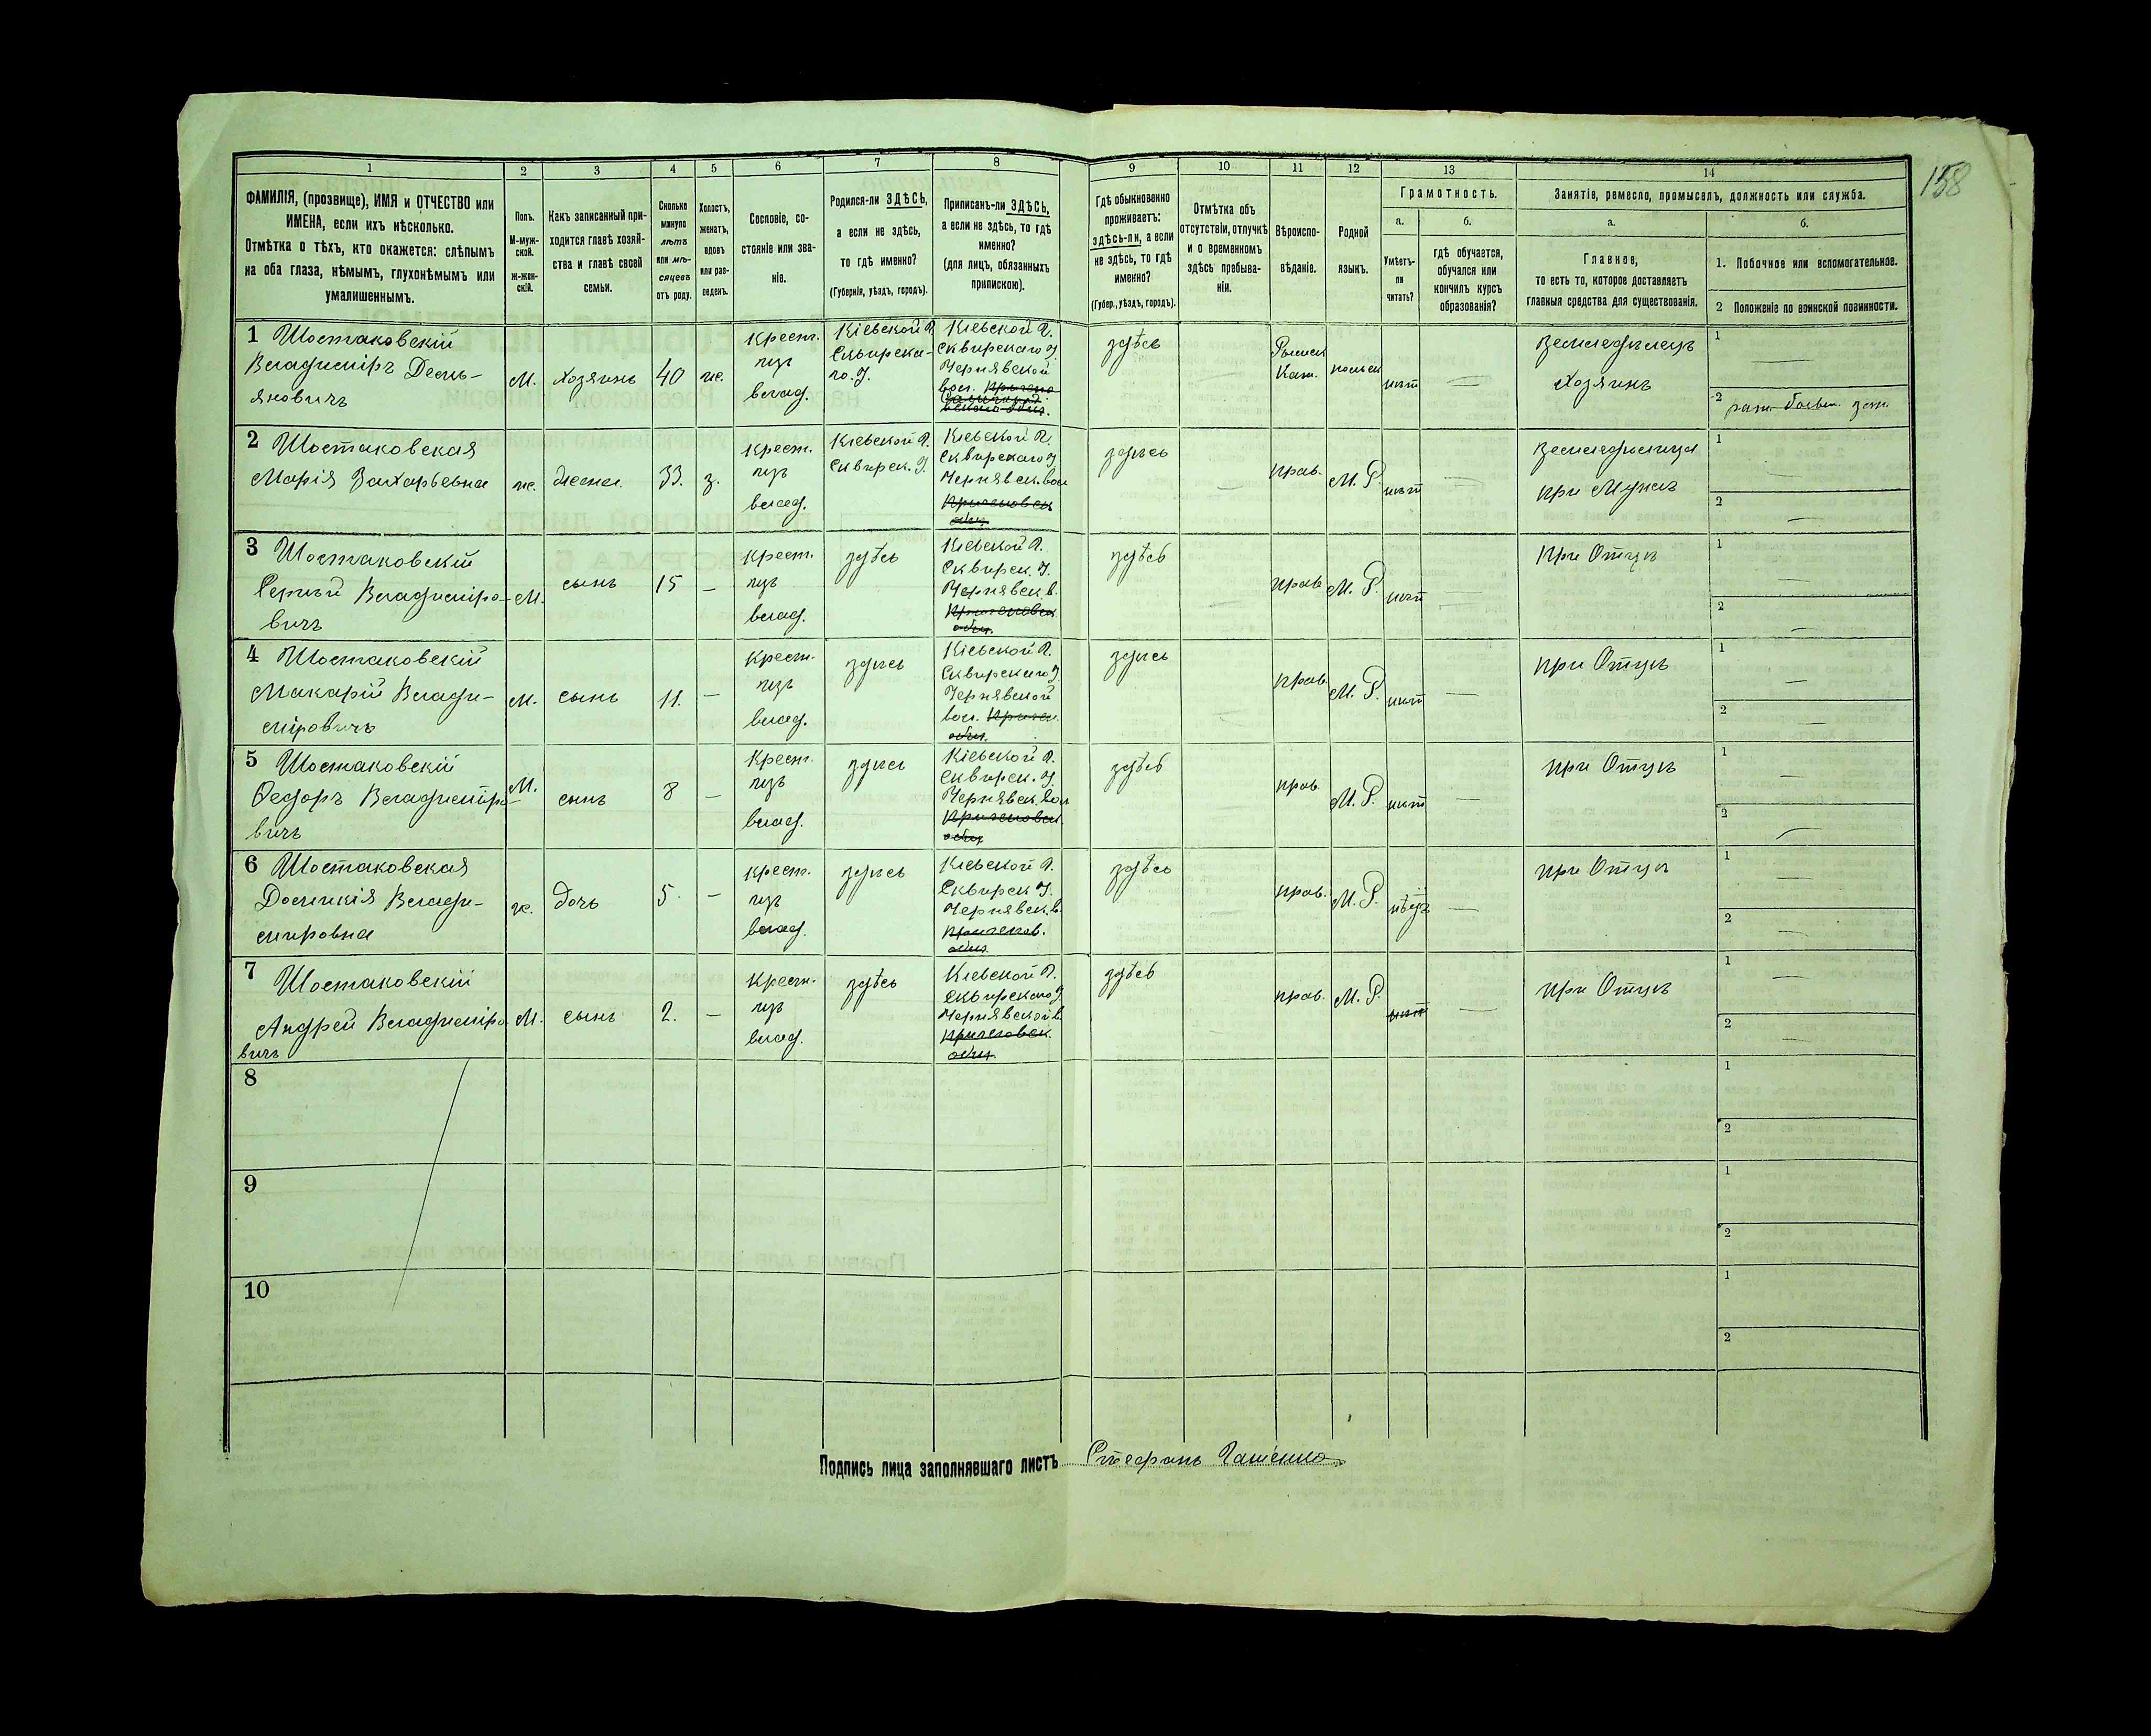 158
1 2 3 4 5 6 7 8 9 10 11 12 13 14
ФАМИЛІЯ, (прозвище), ИМЯ и ОТЧЕСТВО или
ИМЕНА, если ихъ нѣсколько.
Отмѣтка о тѣхъ, кто окажется: слѣпымъ
на оба глаза, нѣмымъ, глухонѣмымъ или
умалишеннымъ.
Полъ.
М-муж-
ской.
ж-жен-
скій.
Какъ записанный при-
ходится главѣ хозяй-
ства и главѣ своей
семьи.
Сколько
минуло
лѣтъ
или мѣ-
сяцевъ
отъ роду.
Холостъ,
женатъ,
вдовъ
или раз-
веденъ.
Сословіе, со-
стояніе или зва-
ніе.
Родился-ли ЗДѢСЬ,
а если не здѣсь,
то гдѣ именно?
(Губернія, уѣздъ, городъ).
Приписанъ-ли ЗДѢСЬ,
а если не здѣсь, то гдѣ
именно?
(для лицъ, обязанныхъ
припискою).
Гдѣ обыкновенно
проживаетъ:
здѣсь-ли, а если
не здѣсь, то гдѣ
именно?
(Губер., уѣздъ, городъ).
Отмѣтка объ
отсутствіи, отлучкѣ
и о временномъ
здѣсь пребыва-
ніи.
Вѣроиспо-
вѣданіе.
Родной
языкъ.
Грамотность.
а.
Умѣетъ-
ли
читать?
б.
гдѣ обучается,
обучался или
кончилъ курсъ
образованія?
Занятіе, ремесло, промыселъ, должность или служба.
а.
Главное,
то есть то, которое доставляетъ
главныя средства для существованія.
б.
1. Побочное или вспомогательное.
2 Положеніе по воинской повинности.
1 Шостаковскій
Владиміръ Демь-
яновичъ
М.
Хозяинъ
40
же.
крест.
изъ
влад.
Кіевской Г.
Сквирска-
го. У.
Кіевской Г.
Сквирскаго У.
Чернявской
вол.
здѣсь
Римск
Кат.
польск
нѣт
—
Земледѣлецъ
Хозяинъ
1 —
2
2 Шостаковская
Марія Захарьевна
же.
жена
33.
з.
крест.
изъ
влад.
Кіевской Г.
Сквирск. У.
Кіевской Г.
Сквирскаго У
Чернявск. вол
здѣсь
—
прав.
М. Р.
нѣт
—
Земледѣлица
при Мужѣ
1 —
2 —
3 Шостаковскій
Сергѣй Владиміро-
вичъ
М.
сынъ
15
—
крест.
изъ
влад.
здѣсь
Кіевской Г.
Сквирск. У.
Чернявск. в.
здѣсь
—
прав
М. Р.
нѣт
—
при Отцѣ
1 —
2 —
4 Шостаковскій
Макарій Влади-
міровичъ
М.
сынъ
11.
—
крест.
изъ
влад.
здѣсь
Кіевской Г.
Сквирскаго У
Чернявской
вол.
здѣсь
—
прав.
М. Р.
нѣт
—
при Отцѣ
1 —
2 —
5 Шостаковскій
Ѳедоръ Владиміро-
вичъ
М.
сынъ
8
—
крест.
изъ
влад.
здѣсь
Кіевской Г.
Сквирск. У.
Чернявск. вол
здѣсь
прав
М. Р.
нѣт
—
при Отцѣ
1 —
2 —
6 Шостаковская
Домникія Влади-
мировна
ж.
дочь
5.
—
крест.
изъ
влад.
здѣсь
Кіевской Г.
Сквирск У.
Чернявск. в.
здѣсь
—
прав.
М. Р.
нѣтъ
—
при Отцѣ
1 —
2 —
7 Шостаковскій
Андрей Владиміро
вичъ
М.
сынъ
2.
—
крест.
изъ
влад.
здѣсь
Кіевской Г.
Сквирскаго У
Чернявской в.
здѣсь
—
прав.
М. Р.
нѣт
—
при Отцѣ
1 —
2 —
8
1
2
9
1
2
10
1
2
Подпись лица заполнявшаго листъ Стефанъ